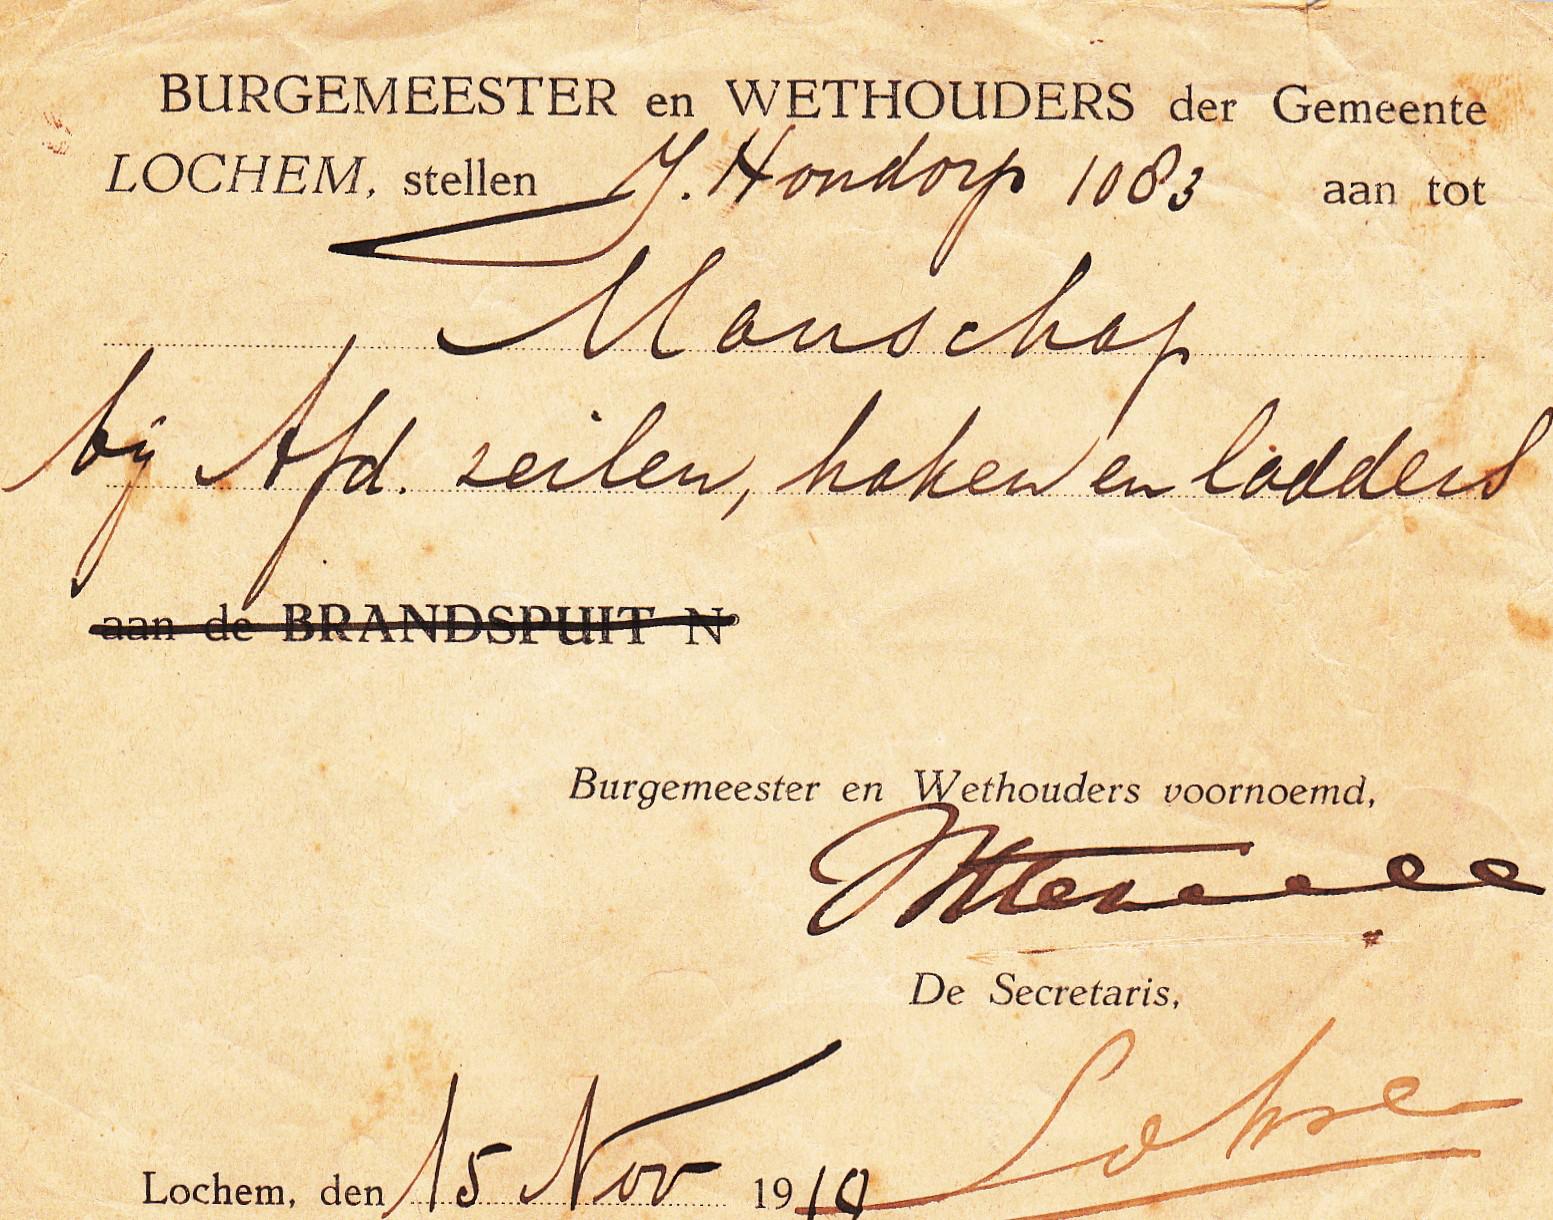 BURGEMEESTER en WETHOUDERS der Gemeente
LOCHEM, stellen J. Hondorp 1083 aan tot
Manschap
bij Afd. zeilen, haken en ladders
aan de BRANDSPUIT No
Burgemeester en Wethouders voornoemd,
De Secretaris,
Lochem, den 15 Nov 19